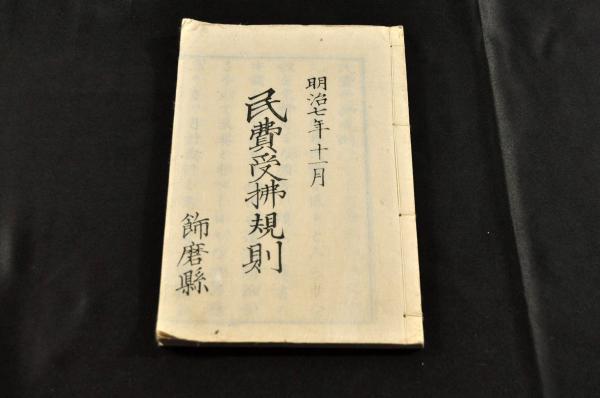 明治七年十一月
民費受拂規則
飾磨縣